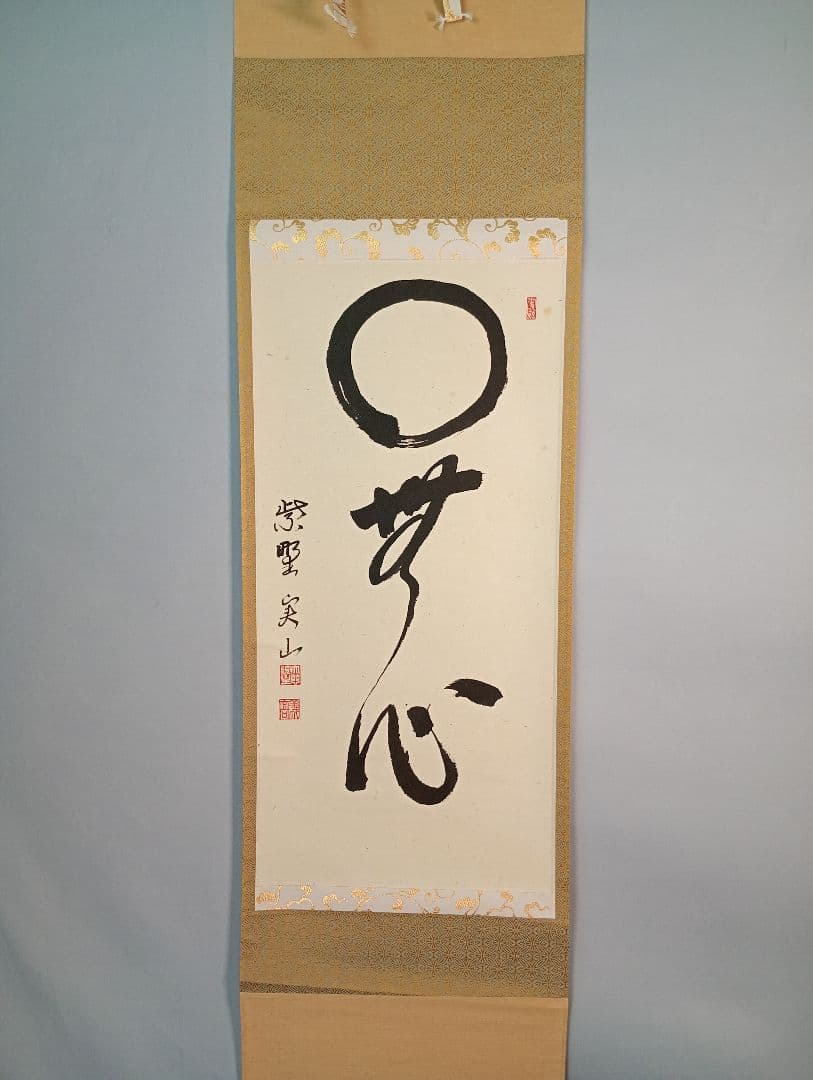 〇無心
紫野実山